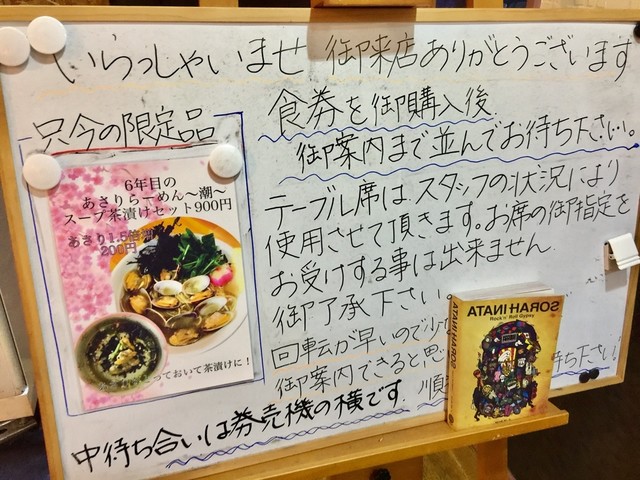 いらっしゃいませ 御来店ありがとうございます
只今の限定品
6年目の
あさりらーめん～潮～
スープ茶漬けセット900円
あさり1.5倍
200円
とっておいて茶漬けに!
食券を御購入後
御案内まで並んでお待ち下さい。
テーブル席は、スタッフの状況により
使用させて頂きます。お席の御指定を
お受けする事は出来ません
御了承下さい。
回転が早いので少
御案内できると思
順
待ち下さい!
中待ち合いは券売機の横です.
ATANI HAROS
SORAH INATA
Rock'n' Roll Gypsy